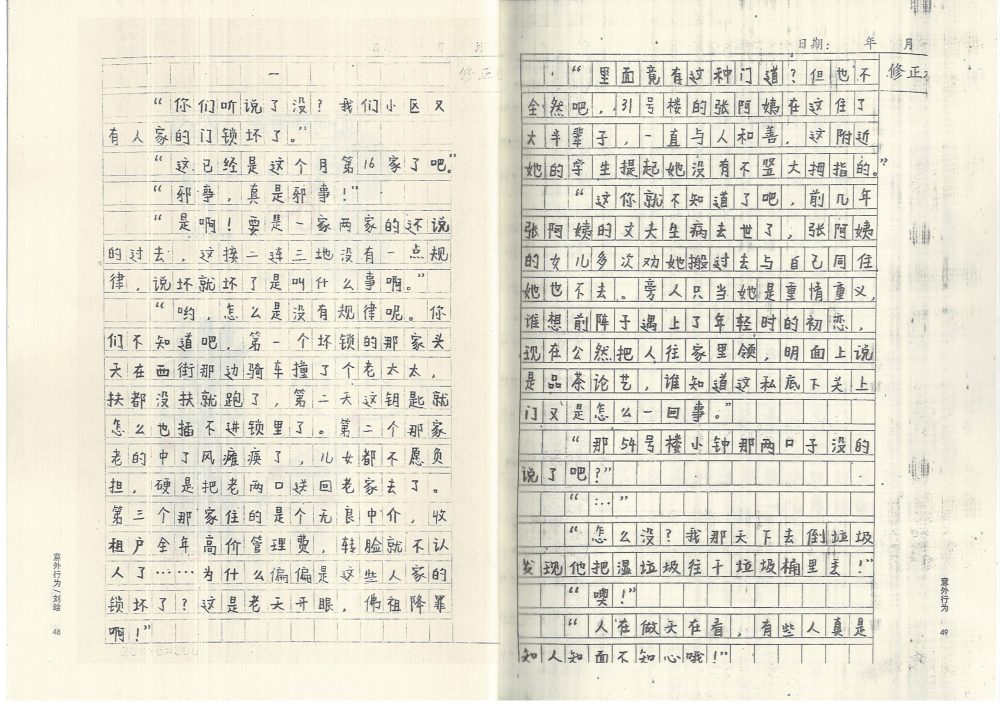 一
“你们听说了没？我们小区又
有人家的门锁坏了。”
“这已经是这个月第16家了吧。”
“邪事，真是邪事！”
“是啊！要是一家两家的还说
的过去，这接二连三地没有一点规
律，说坏就坏了是叫什么事啊。”
“哟，怎么是没有规律呢。你
们不知道吧，第一个坏锁的那家头
天在西街那边骑车撞了个老太太，
扶都没扶就跑了，第二天这钥匙就
怎么也插不进锁里了。第二个那家
老的中了风瘫痪了，儿女都不愿负
担，硬是把老两口送回老家去了。
第三个那家住的是个无良中介，收
租户全年高价管理费，转脸就不认
人了……为什么偏偏是这些人家的
锁坏了？这是老天开眼，佛祖降罪
啊！”
意外行为/刘晗
48
日期： 年 月
修正
“里面竟有这种门道？但也不
全然吧，31号楼的张阿姨在这住了
大半辈子，一直与人和善，这附近
她的学生提起她没有不竖大拇指的。”
“这你就不知道了吧，前几年
张阿姨的丈夫生病去世了，张阿姨
的女儿多次劝她搬过去与自己同住
她也不去。旁人只当她是重情重义，
谁想前阵子遇上了年轻时的初恋，
现在公然把人往家里领，明面上说
是品茶论艺，谁知道这私底下关上
门又是怎么一回事。”
“那54号楼小钟那两口子没的
说了吧？”
“…”
“怎么没？我那天下去倒垃圾
发现他把湿垃圾往干垃圾桶里丢！”
“噢！”
“人在做天在看，有些人真是
知人知面不知心哦！”
意外行为
49